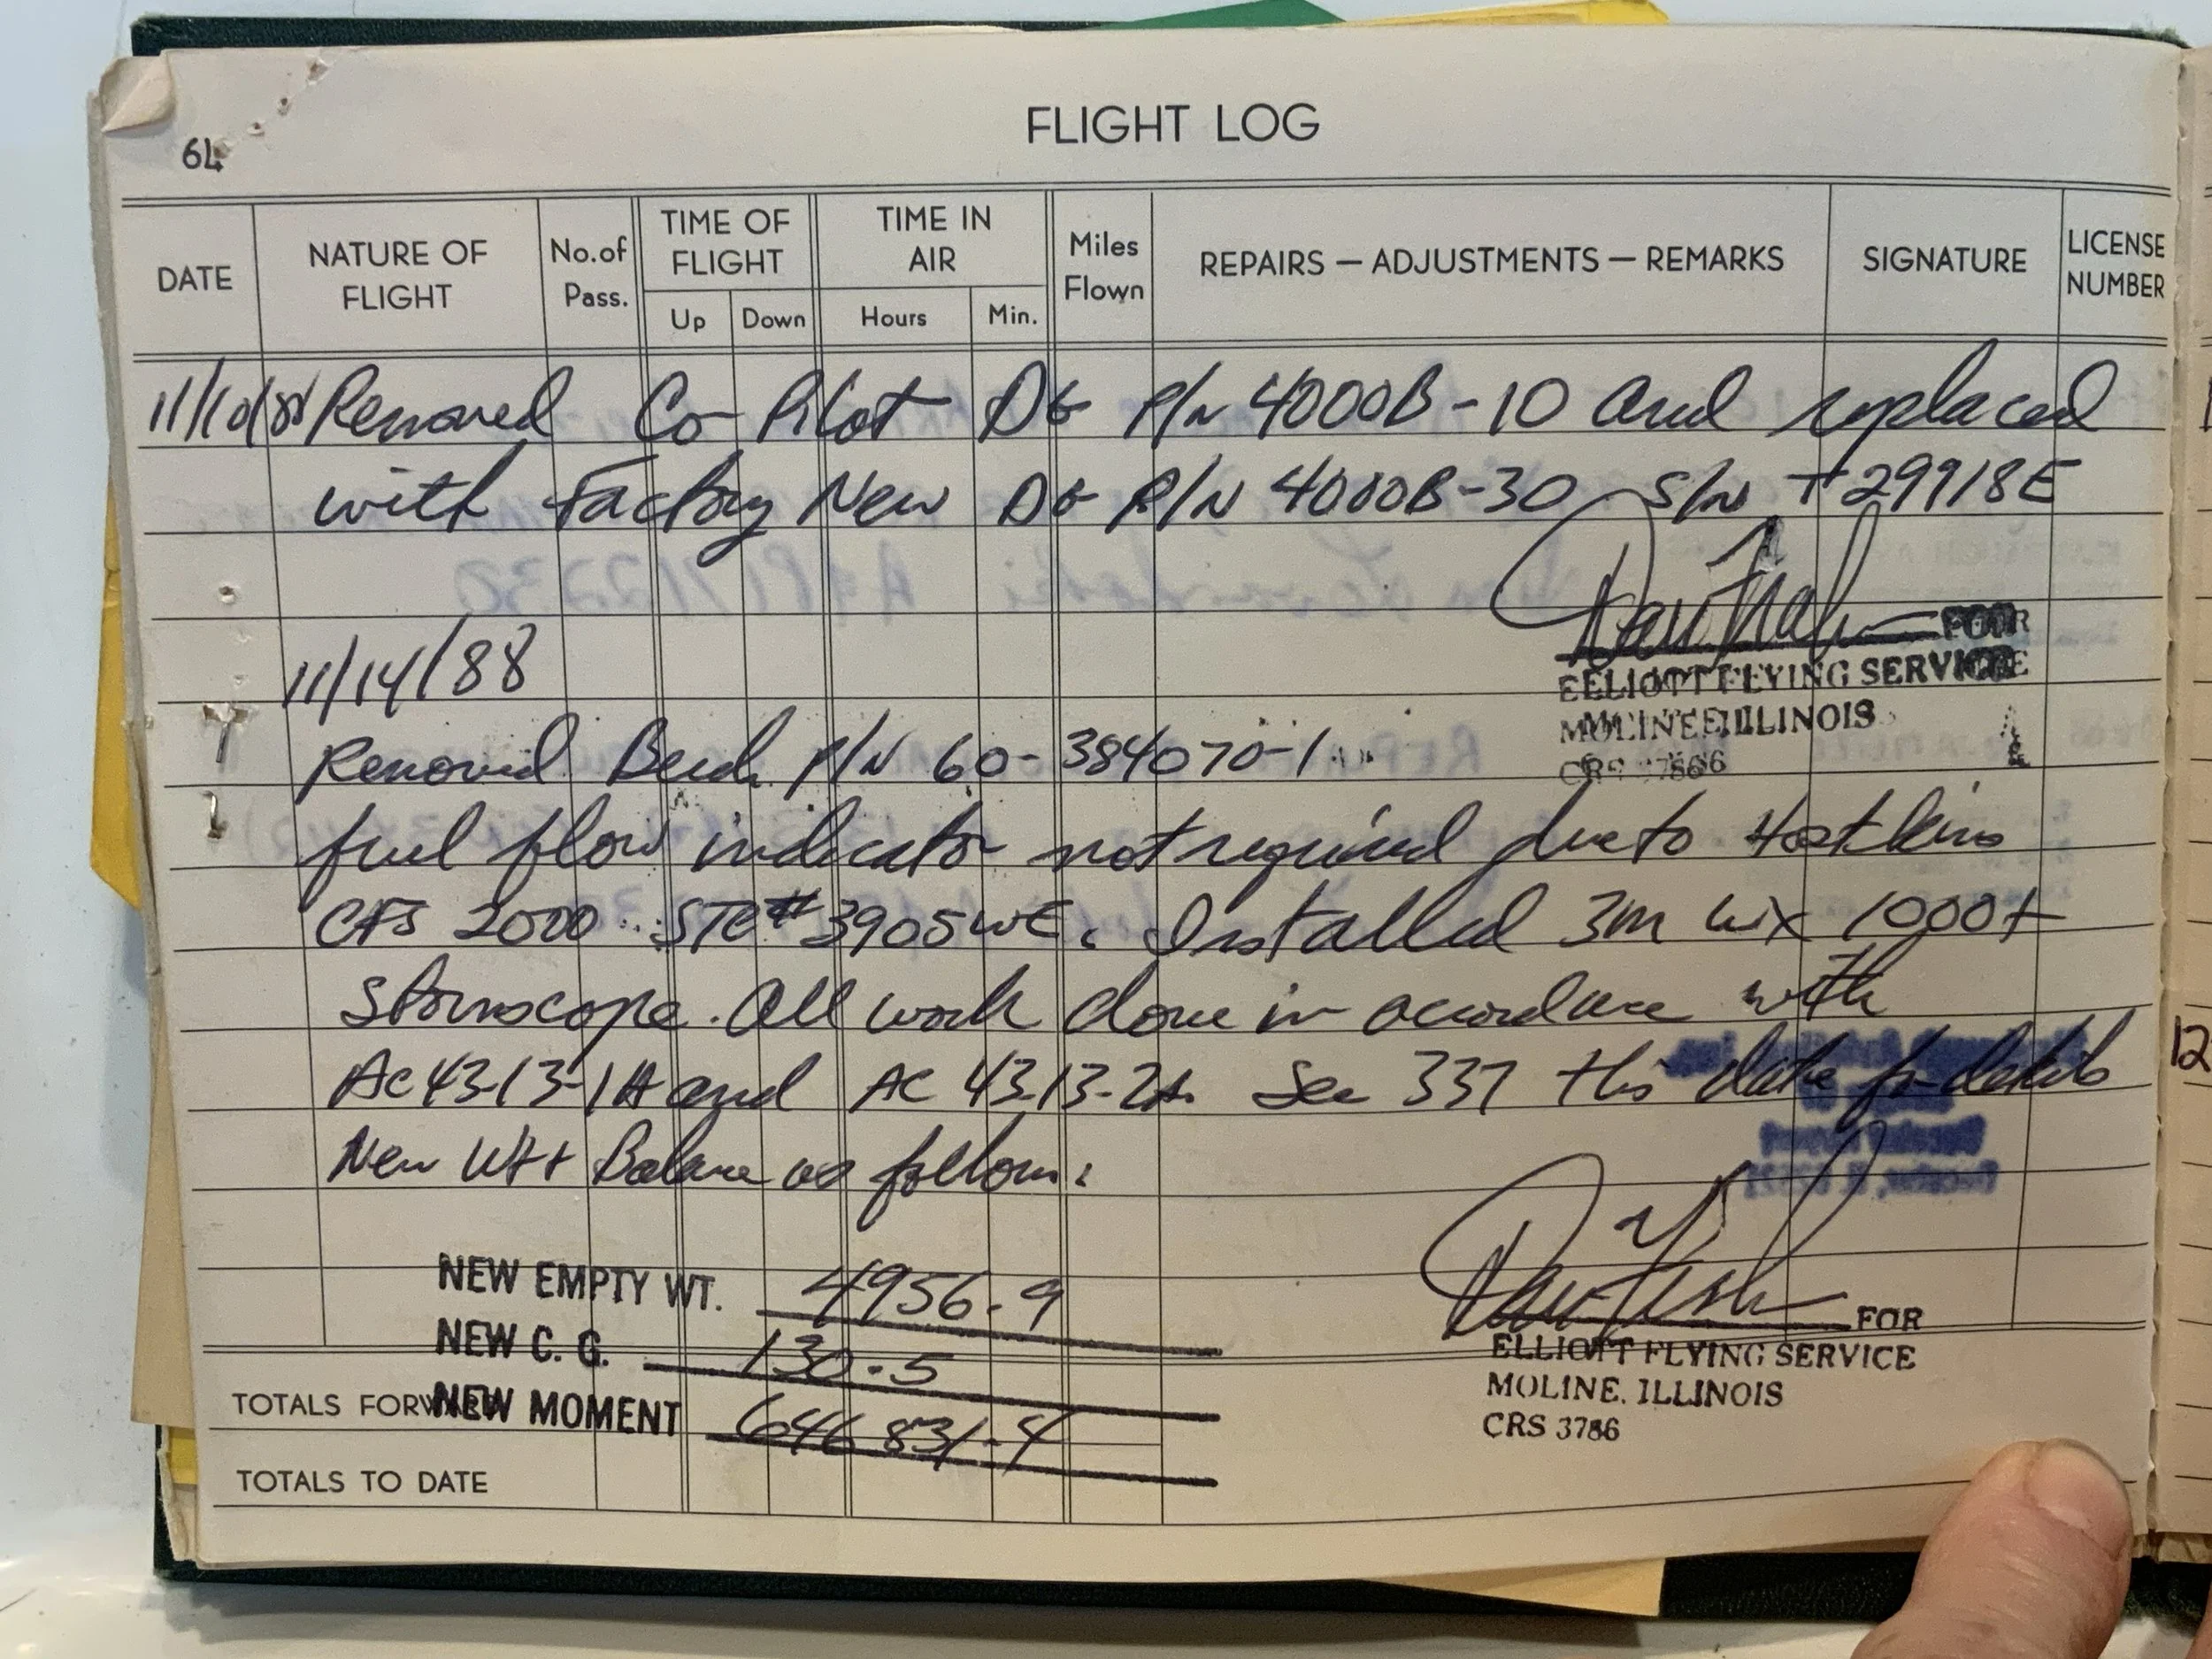 64
FLIGHT LOG
DATE
NATURE OF FLIGHT
No. of Pass.
TIME OF FLIGHT
Up
Down
TIME IN AIR
Hours
Min.
Miles Flown
REPAIRS — ADJUSTMENTS — REMARKS
SIGNATURE
LICENSE NUMBER
11/10/88 Removed Co Pilot DG P/N 4000B-10 and replaced
with Factory New DG P/N 4000B-30 S/N T29918E
FOR
ELLIOTT FLYING SERVICE
MOLINE ILLINOIS
CRS 3786
11/14/88
Removed Beech P/N 60-384070-1
fuel flow indicator not required due to Hoskins
CFS 2000 STC# 3905WE. Installed 3M WX 1000+
Stormscope. All work done in accordance with
AC 43-13-1A and AC 43.13-2A. See 337 this date for details
New Wt + Balance as follows:
NEW EMPTY WT. 4956.9
NEW C. G. 130.5
NEW MOMENT 646831.4
FOR
ELLIOTT FLYING SERVICE
MOLINE, ILLINOIS
CRS 3786
TOTALS FORW
TOTALS TO DATE
12